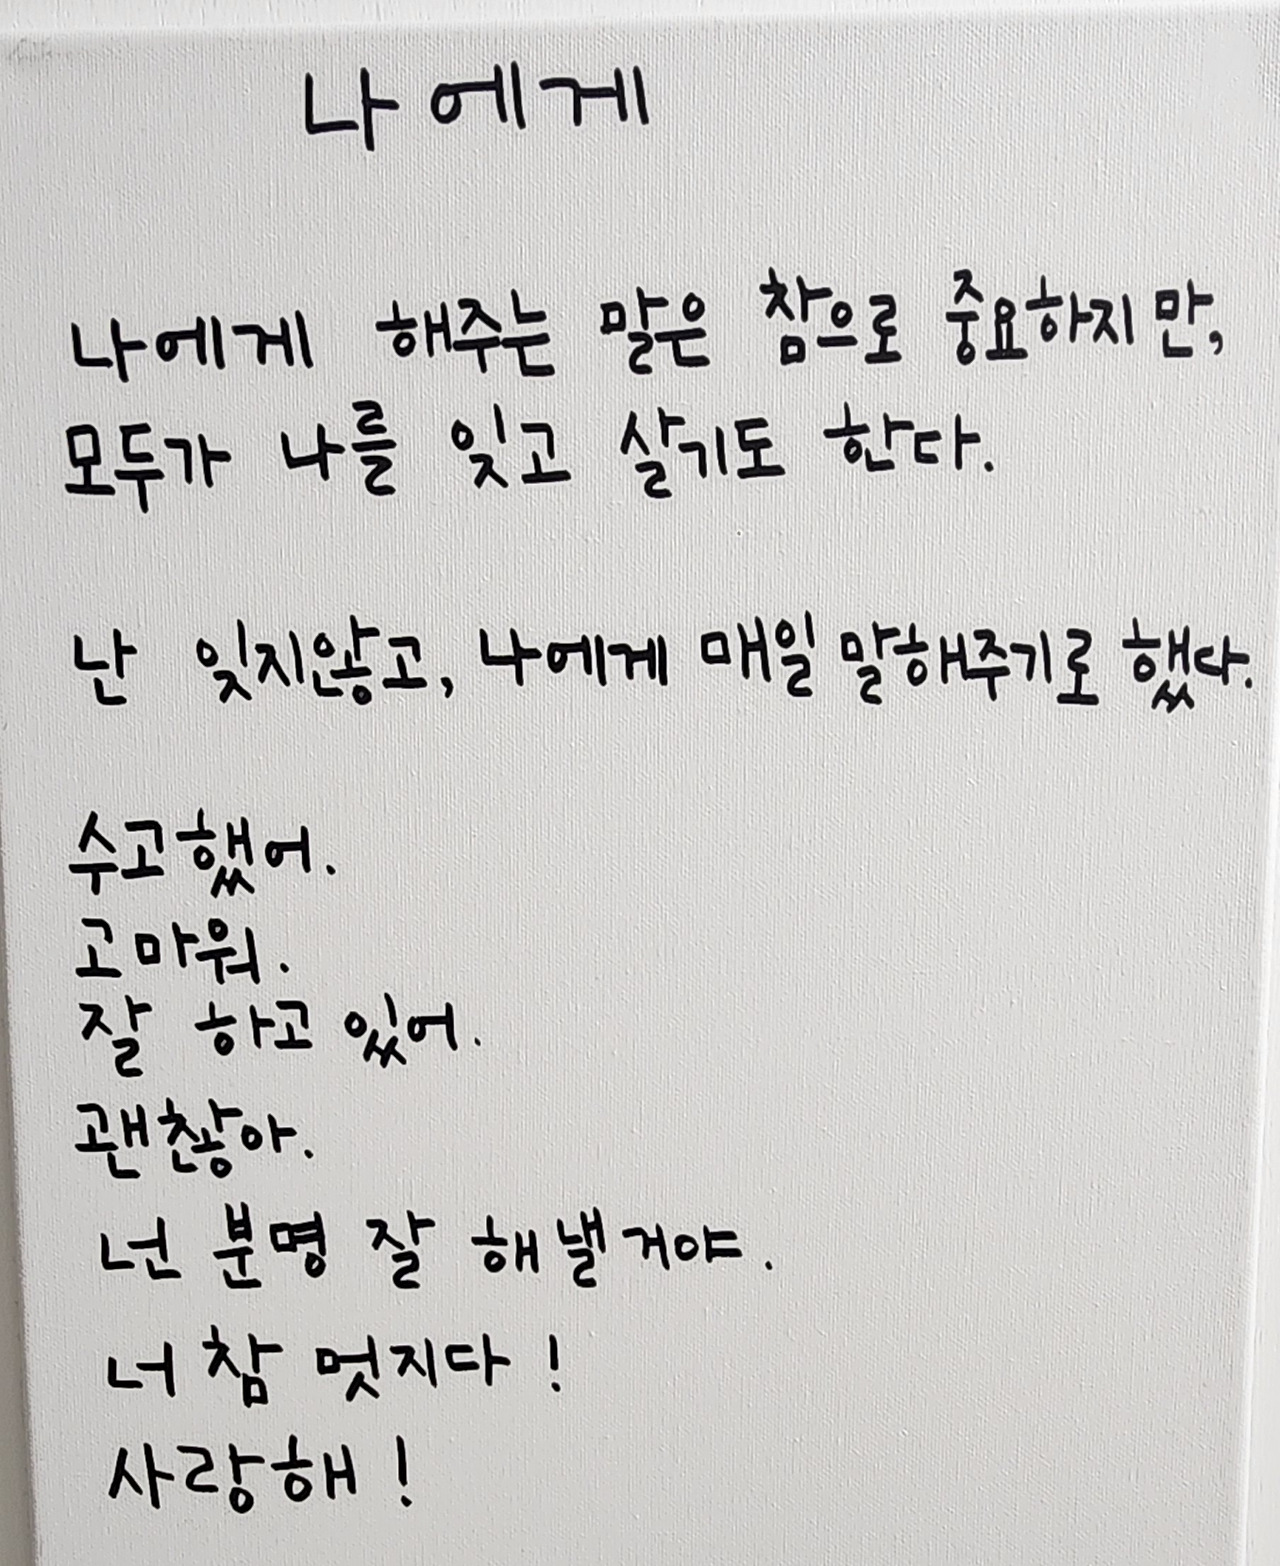 나에게
나에게 해주는 말은 참으로 중요하지만,
모두가 나를 잊고 살기도 한다.
난 잊지않고, 나에게 매일 말해주기로 했다.
수고했어.
고마워.
잘 하고 있어.
괜찮아.
넌 분명 잘 해낼거야.
너 참 멋지다!
사랑해!